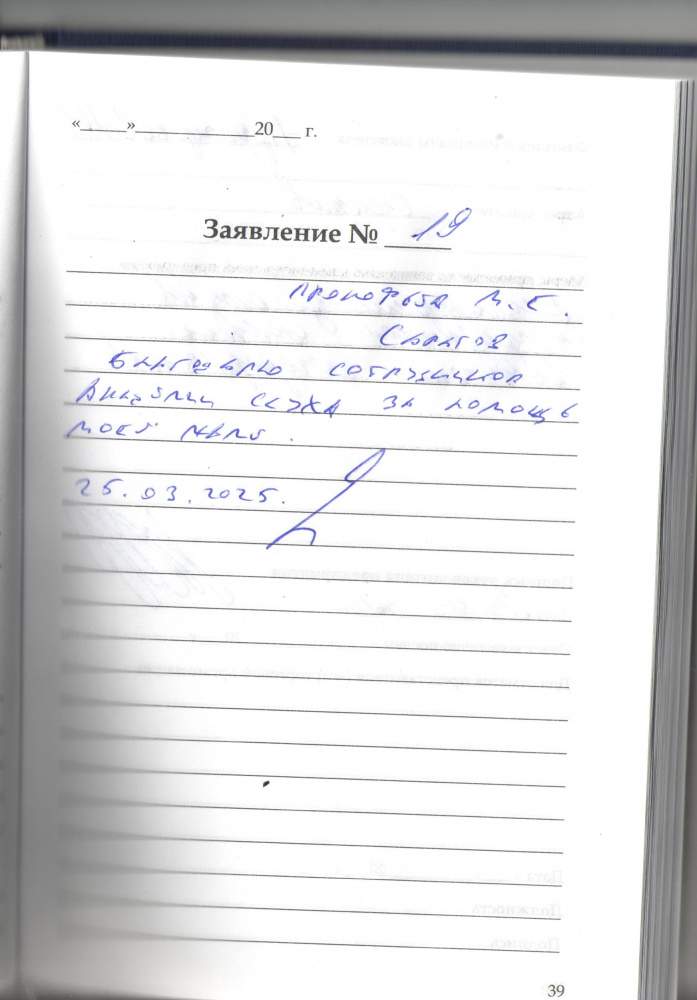 «_____»____________20___ г.
Заявление № 19
Прокофьва М. Е.
Саратов
Благодарю сотрудников
Академии слуха за помощь
моей маме.
25.03.2025.
39